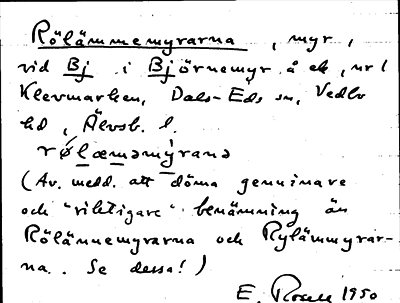 Rölämmemyrarna, myr,
vid Bj i Björnemyr å ek, nr 1
Klevmarken, Dals-Eds sn, Vedbo
hd, Älvsb. l.
rǿlæməmẏranə
(Av. medd. att döma genuinare
och "riktigare" benämning än
Rölännemyrarna och Rylämmyrar-
na. Se dessa!)
E. Rosell 1950